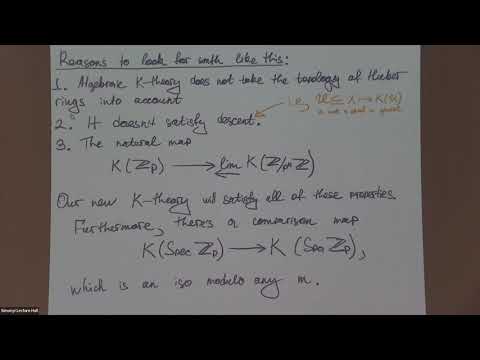 Reasons to look for smth like this:
1. Algebraic K-theory does not take the topology of Huber
rings into account
2. It doesn't satisfy descent.
i.e., U ⊆ X ↦ K(U)
is not a sheaf in general
3. The natural map
K(ℤp) → lim K(ℤ/pⁿℤ)
←
Our new K-theory will satisfy all of these properties.
Furthermore, there's a comparison map
K(Spec ℤp) → K(Spa ℤp),
which is an iso modulo any m.
Simonyi Lecture Hall